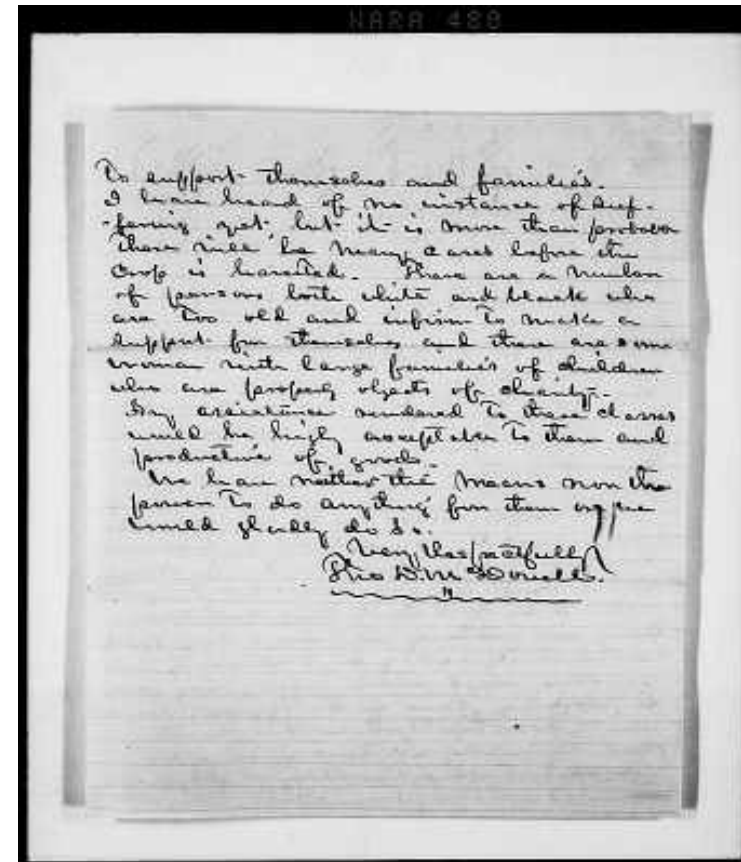 NARA 488
To support themselves and families.
I have heard of no instance of Suf-
-fering yet, but it is more than probable
there will be many cases before the
Crop is harvested. There are a number
of persons both white and black who
are too old and infirm to make a
support for themselves and there are some
woman with large families of children
who are properly objects of charity.
Any assistance rendered to these classes
would be highly acceptable to them and
productive of good.
We have neither the means nor the
power to do anything for them or we
would gladly do so.
Very Respectfully
Tho D. McDowell.